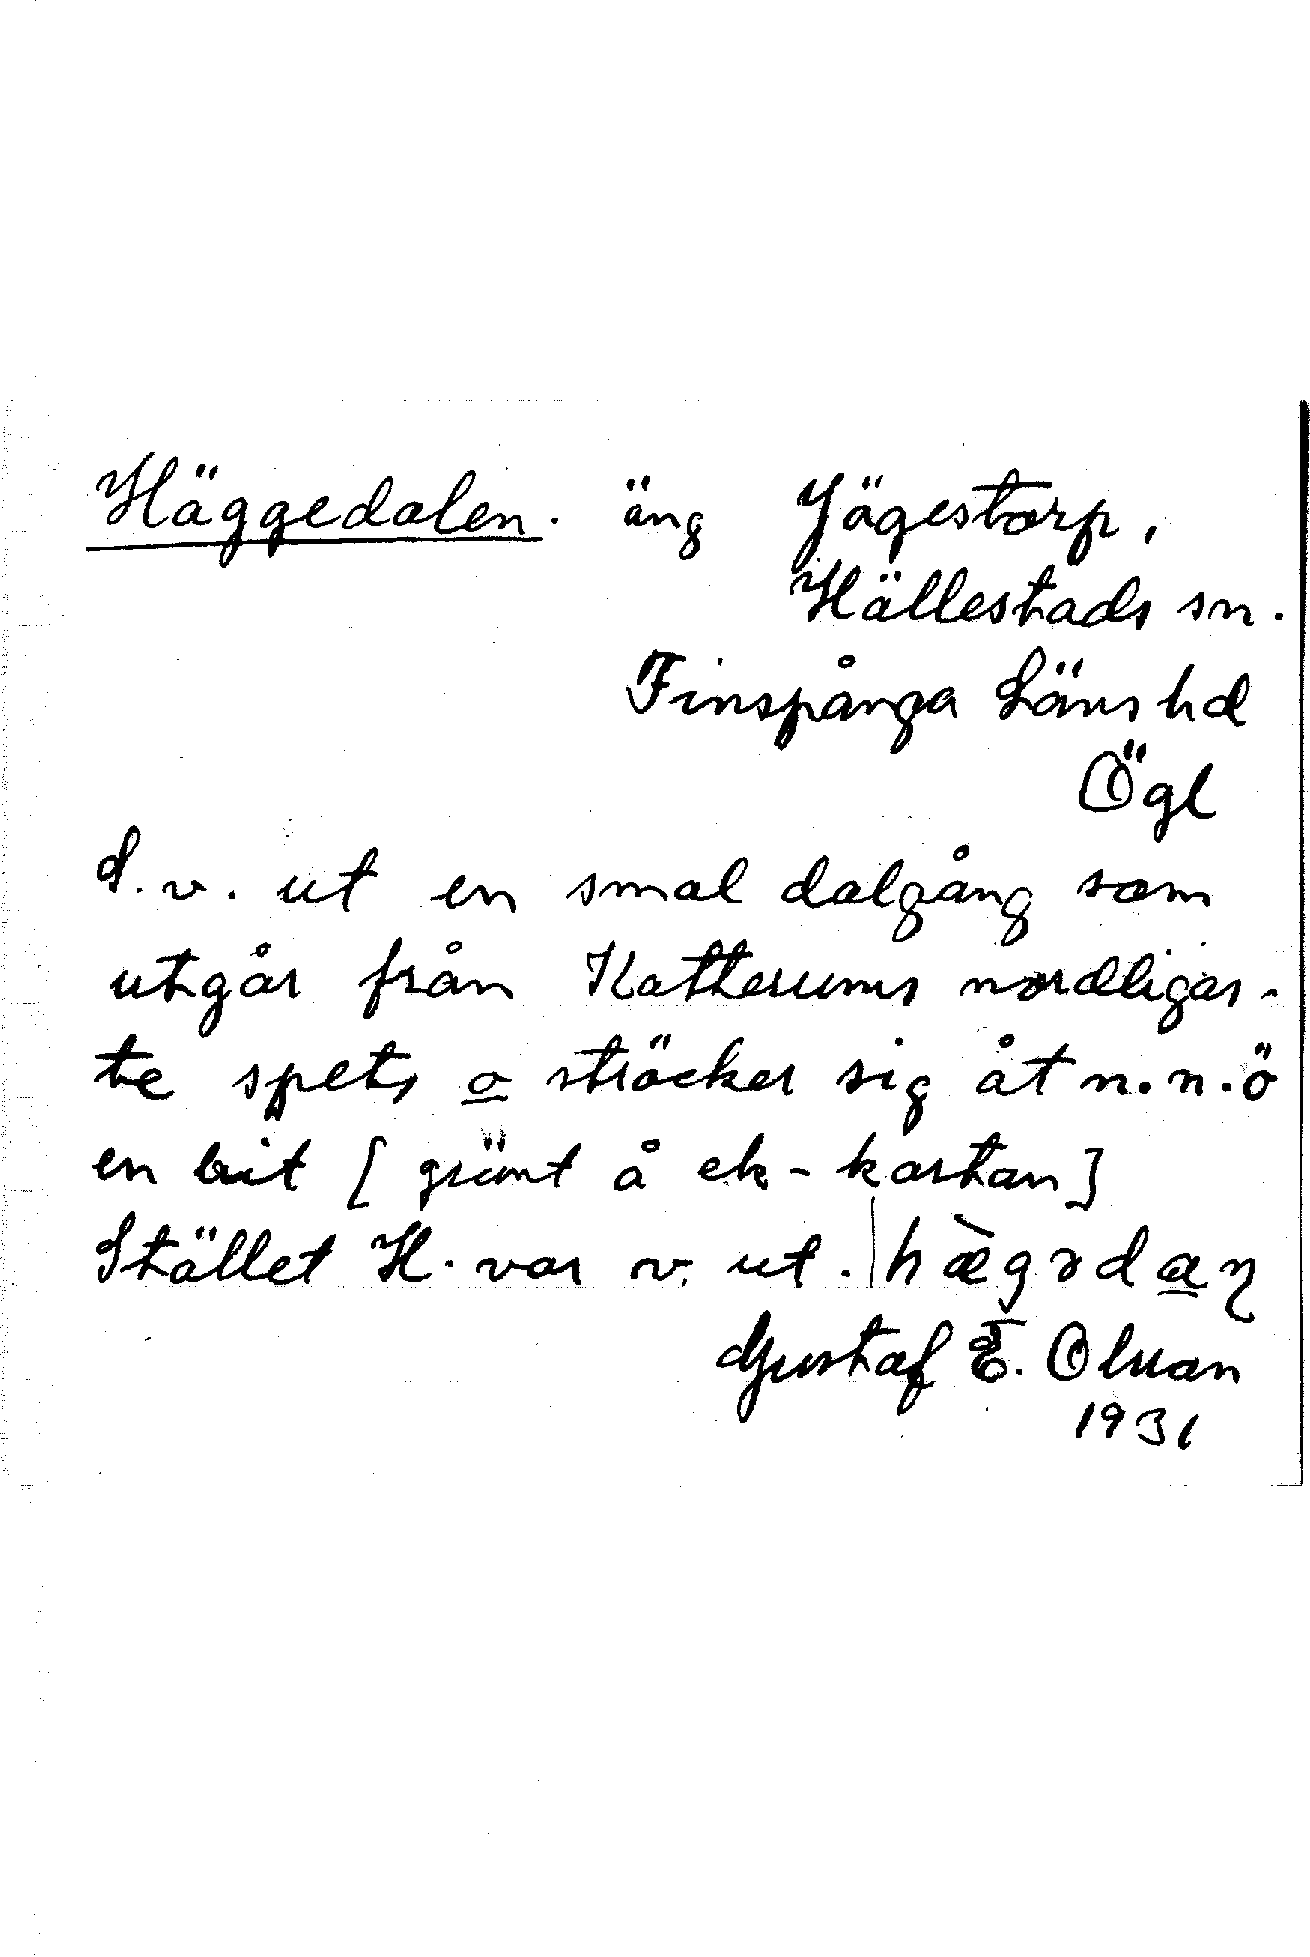 Häggedalen. äng Jägestorp,
Hällestads sn.
Finspånga Läns hd
Ögl
S. v. ut en smal dalgång som
utgår från Katterums nordligas-
te spets o sträcker sig åt n.n.ö
en bit [grönt å ek-kartan]
Stället H. var v. ut. | hæ̀gədaɳ
Gustaf E. Olsson
1931